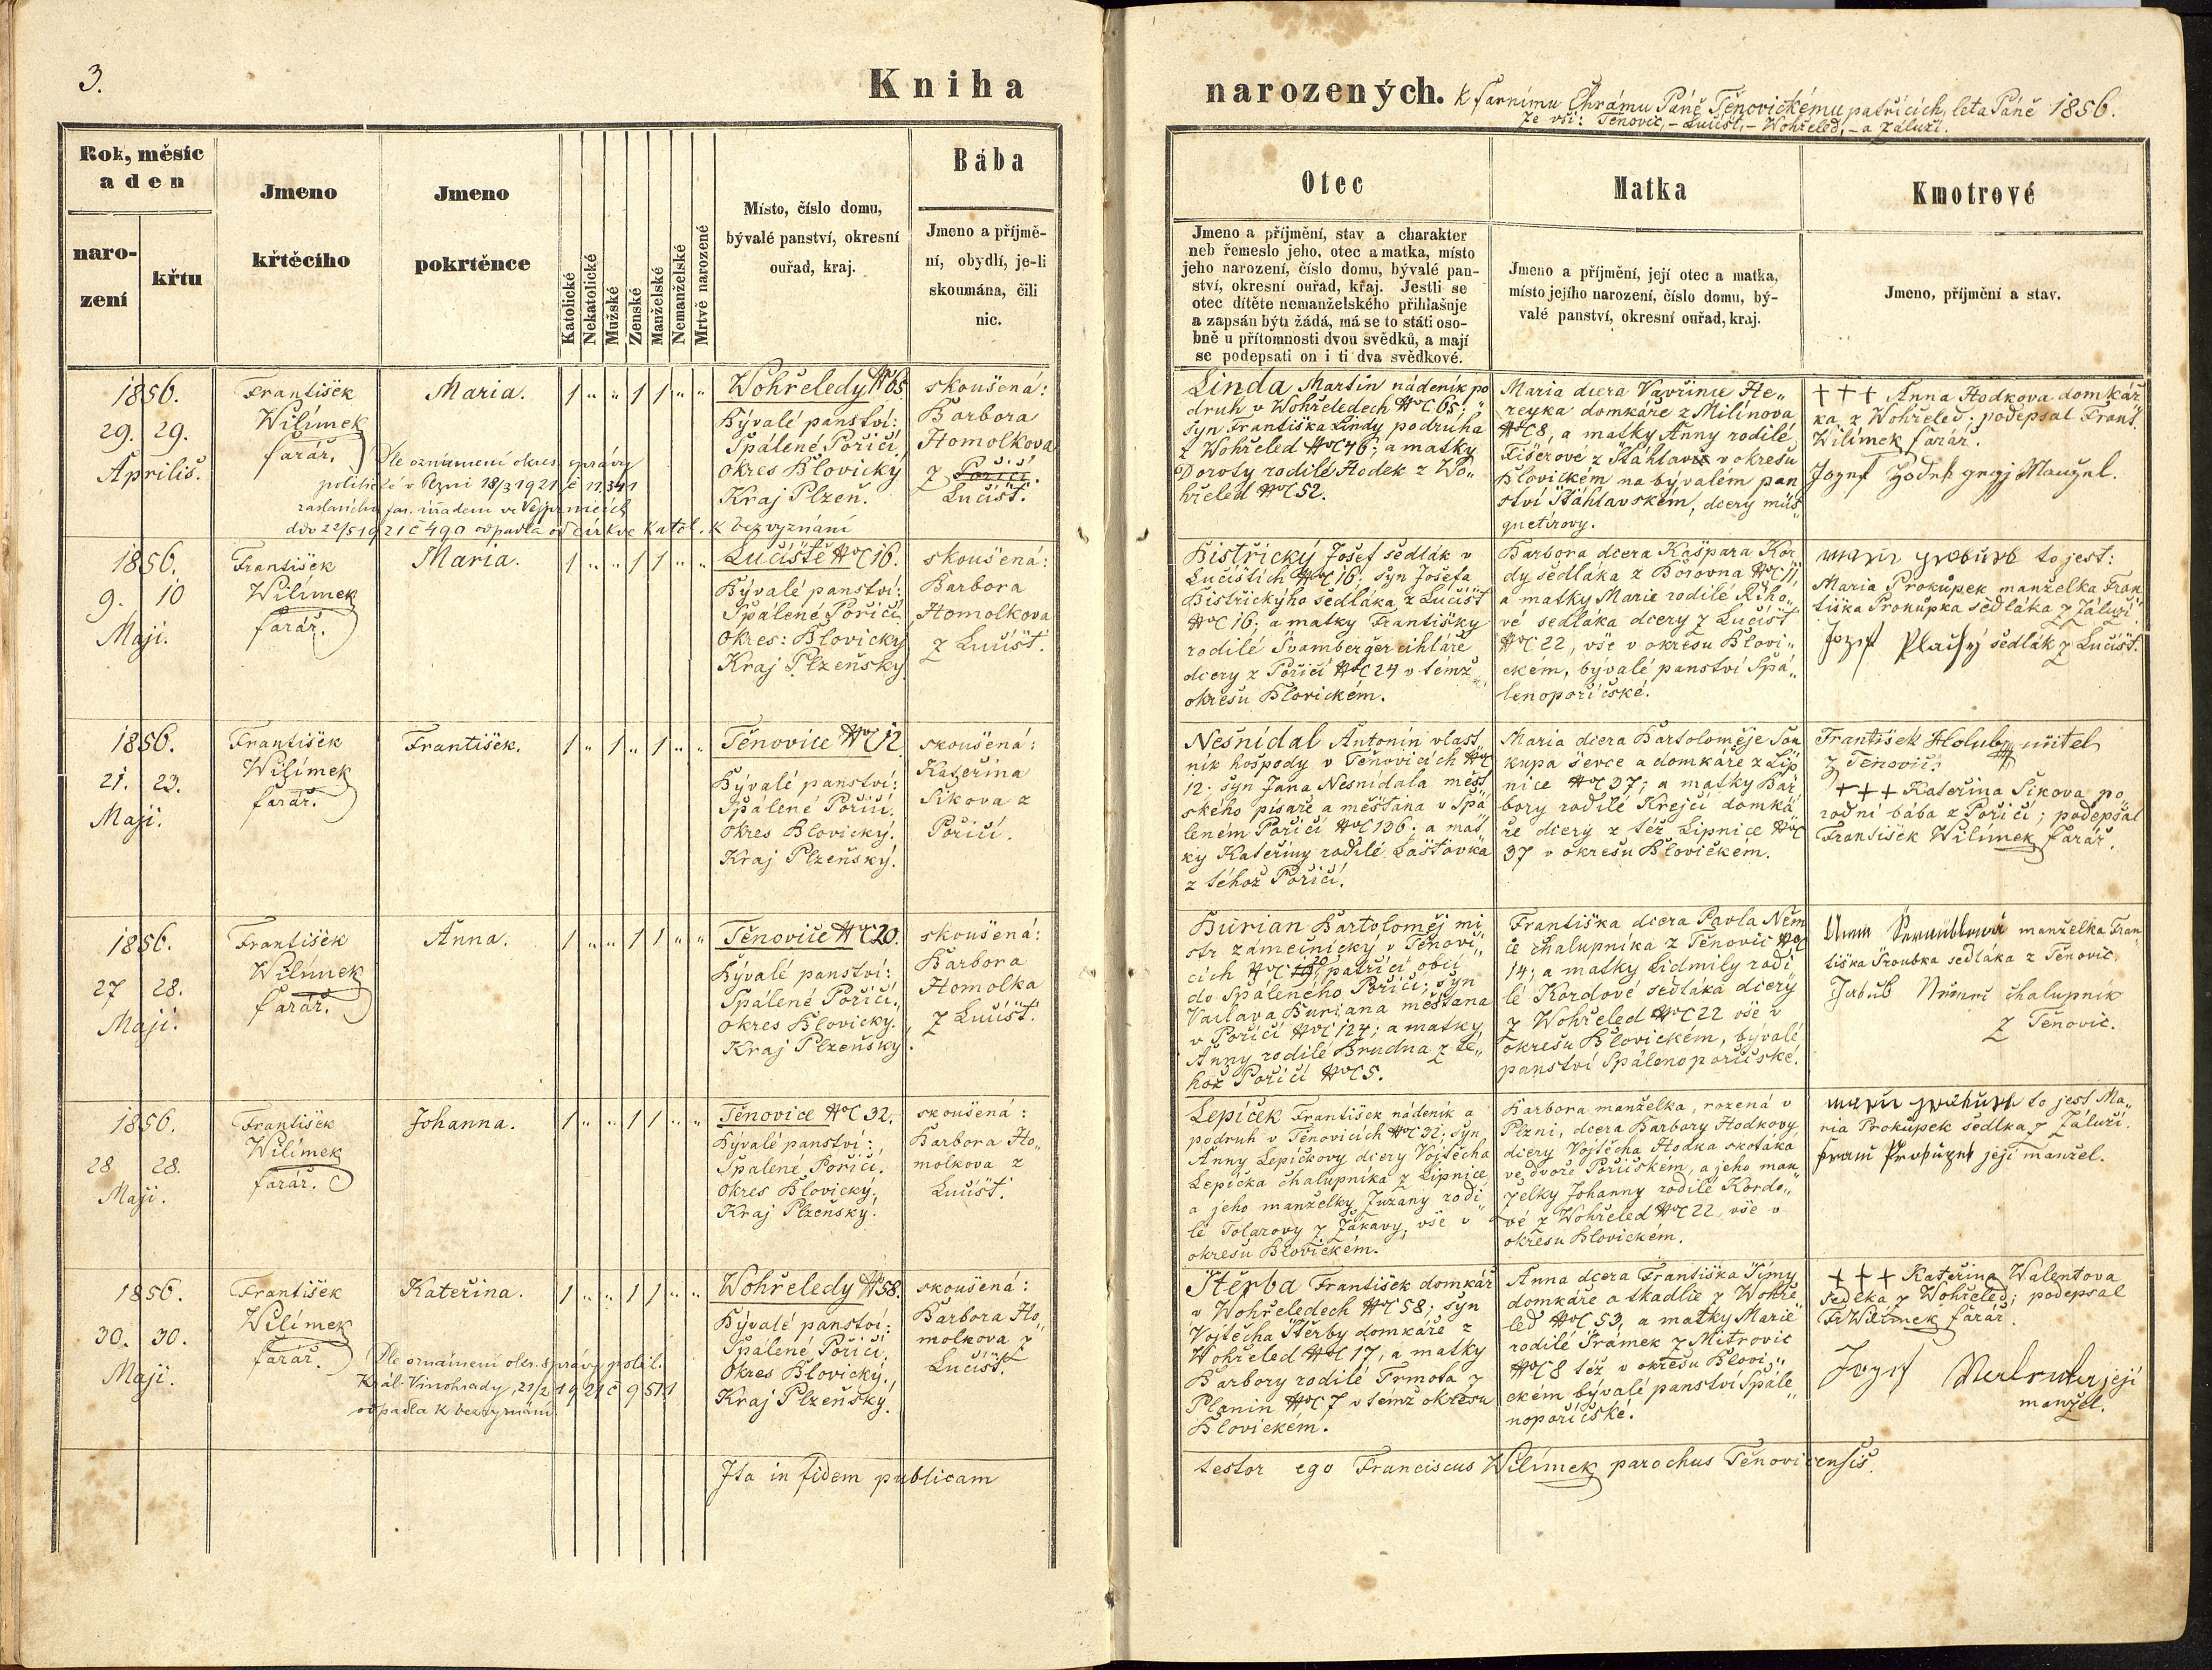 3.
Kniha
narozených. k farnímu Chrámu Páně Těnovickému patřících, leta Páně 1856.
Ze vsí: Těnovic, - Lučišť, - Wohřeled, - a Záluží.
Rok, měsíc
a den
naro-
zení
křtu
Jmeno
křtěcího
Jmeno
pokrtěnce
Katolické
Nekatolické
Mužské
Ženské
Manželské
Nemanželské
Mrtvě narozené
Místo, číslo domu,
bývalé panství, okresní
ouřad, kraj.
Bába
Jmeno a příjmě-
ní, obydlí, je-li
skoumána, čili
nic.
Otec
Jmeno a příjmění, stav a charakter
neb řemeslo jeho, otec a matka, místo
jeho narození, číslo domu, bývalé pan-
ství, okresní ouřad, kraj. Jestli se
otec dítěte nemanželského přihlašuje
a zapsán býti žádá, má se to státi oso-
bně u přítomnosti dvou svědků, a mají
se podepsati on i ti dva svědkové.
Matka
Jmeno a příjmění, její otec a matka,
místo jejího narození, číslo domu, bý-
valé panství, okresní ouřad, kraj.
Kmotrové
Jmeno, příjmění a stav.
1856.
29. 29.
Aprilis.
František
Wilímek
farář.
Maria.
1 " " 1 1 " "
Wohřeledy NC 65
Bývalé panství:
Spálené Poříčí,
Okres Blovický
Kraj Plzeň.
skoušená:
Barbora
Homolkova
z Poříčí.
Lučišť.
Dle oznámení okres. správy
politické v Plzni 18/3 1921 č 11.341
far. úřadem ve
ddo 22/5 1921 č 490 odpadla od církve katol. k bezvyznání
Linda Martin nádeník po
druh v Wohřeledech NC 65;
syn Františka Lindy podruha
z Wohřeled NC 46; a matky
Doroty rodilé Hodek z Wo„
hřeled NC 52.
Maria dcera Vavřince He„
reyka domkáře z Milínova
NC 8, a matky Anny rodilé
Fišerové z Šťáhlav v okresu
Blovickém na bývalém pan
ství Šťáhlavském, dcery muš„
quetirovy.
+++ Anna Hodkova domkář
ka z Wohřeled; podepsal Frant.
Wilímek farář.
Jozef Hodek gegj Manzel.
1856.
9. 10
Maji.
František
Wilímek
farář.
Maria.
1 " " 1 1 " "
Lučiště NC 16.
Bývalé panství:
Spálené Poříčí
Okres: Blovický
Kraj Plzeňský
skoušená:
Barbora
Homolkova
z Lučišť.
Bistřický Josef sedlák v
Lučištích NC 16; syn Josefa
Bistřickýho sedláka z Lučišť
NC 16; a matky Františky
rodilé Švamberger cihláře
dcery z Poříčí NC 24 v témž
okresu Blovickém.
Barbora dcera Kašpara Kor
dy sedláka z Borovna NC 11,
a matky Marie rodilé Řího„
vé sedláka dcery z Lučišť
NC 22, vše v okresu Blovi„
ckém, bývalé panství Spá„
lenopoříčské.
to jest:
Maria Prokůpek manželka Fran
tiška Prokůpka sedláka z Záluží.
Jozef Plachý sedlák z Lučišť.
1856.
21. 23.
Maji.
František
Wilímek
farář.
František.
1 " 1 " 1 " "
Těnovice NC 12
Bývalé panství:
Spálené Poříčí.
Okres Blovický.
Kraj Plzeňský.
skoušená:
Kateřina
Sikova z
Poříčí.
Nesnídal Antonín vlast
ník hospody v Těnovicích NC
12. syn Jana Nesnídala měst
ského písaře a měšťana v Spá
leném Poříčí NC 136; a mat
ky Kateřiny rodilé Laštovka
z téhož Poříčí.
Maria dcera Bartoloměje Sou
kupa ševce a domkáře z Lip
nice NC 37; a matky Bar
bory rodilé Krejčí domká
ře dcery z též Lipnice NC
37 v okresu Blovickém.
František Holub učitel
z Těnovic.
+++ Kateřina Sikova po
rodní bába z Poříčí; podepsal
František Wilímek farář.
1856.
27 28.
Maji.
František
Wilímek
farář.
Anna.
1 " " 1 1 " "
Těnovice NC 20.
Bývalé panství:
Spálené Poříčí.
Okres Blovický.
Kraj Plzeňský
skoušená:
Barbora
Homolka
z Lučišť.
Burian Bartoloměj mi
str zámečnický v Těnovi„
cích NC 20 patřící obcí
do Spáleného Poříčí; syn
Vaclava Buriana měšťana
v Poříčí NC 124; a matky
Anny rodilé Brudna z té„
hož Poříčí NC 5.
Františka dcera Pavla Něm
ce chalupníka z Těnovic NC
14; a matky Lidmily rodi
lé Kordové sedláka dcery
z Wohřeled NC 22 vše v
okresu Blovickém, bývalé
panství Spálenopoříčské.
Anna manželka Fran„
tiška Šroubka sedláka z Těnovic.
Jakub Němec chalupník
z Těnovic.
1856.
28 28.
Maji.
František
Wilímek
farář.
Johanna.
1 " " 1 1 " "
Těnovice NC 32.
Bývalé panství:
Spálené Poříčí.
Okres Blovický,
Kraj Plzeňský.
skoušená:
Barbora Ho„
molkova z
Lučišť.
Lepíček František nádeník a
podruh v Těnovicích NC 32; syn
Anny Lepíčkovy dcery Vojtěcha
Lepíčka chalupníka z Lipnice
a jeho manželky Zuzany rodi
lé Tolarovy z Žákavy, vše v
okresu Blovickém.
Barbora manželka, rozená v
Plzni, dcera Barbory Hodkovy
dcery Vojtěcha Hodka skoťáka
ve dvoře Poříčském, a jeho man„
želky Johanny rodilé Kordo„
vé z Wohřeled NC 22, vše v
okresu Blovickém.
to jest Ma„
ria Prokůpek sedlka z Záluží.
Franc Prokupek její manžel.
1856.
30. 30.
Maji.
František
Wilímek
farář.
Kateřina.
1 " " 1 1 " "
Wohřeledy N 58.
Bývalé panství:
Spálené Poříčí,
Okres Blovický,
Kraj Plzeňský.
skoušená:
Barbora Ho„
molkova z
Lučišť.
Dle oznámení okr. správy polit.
Král. Vinohrady, 21/2 1921 č 9511
odpadla k bezvyznání.
Štěrba František domkář
v Wohřeledech NC 58; syn
Vojtěcha Štěrby domkáře z
Wohřeled NC 17, a matky
Barbory rodilé Trmota z
Planin NC 7 v témž okresu
Blovickém.
Anna dcera Františka Šímy
domkáře a tkadlce z Wohře
led NC 53, a matky Marie
rodilé Trámek z Mitrovic
NC 8 též v okresu Blovi„
ckém bývalé panství Spále„
nopoříčské.
+++ Kateřina Walentova
sedlka z Wohřeled; podepsal
Fr Wilímek farář.
Jozef její
manžel.
Ita in fidem publicam
testor ego Franciscus Wilímek parochus Těnovicensis.